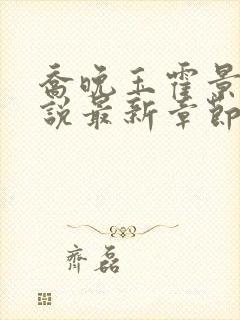 喬晚玉霍景
說最新章節
齊磊